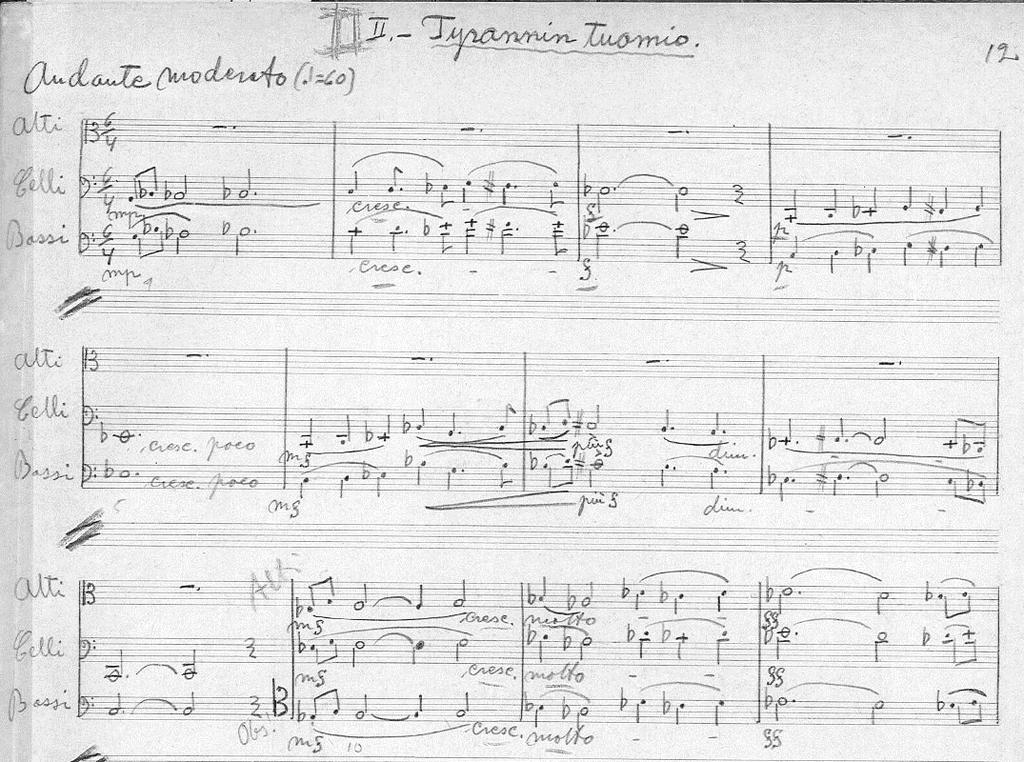 II.- Tyrannin tuomio.
12
Andante moderato (♩=60)
Alti
6/4
Celli
6/4
mp
cresc.
f
p
Bassi
6/4
mp
cresc. - -
f
p
Alti
Celli
cresc. poco
mf
più f
dim.
Bassi
cresc. poco
mf
più f
dim. - -
5
Alti
Alti
mf
cresc. molto
ff
Celli
mf
cresc. molto - -
ff
Bassi
Obs!
mf
10
cresc. molto - -
ff